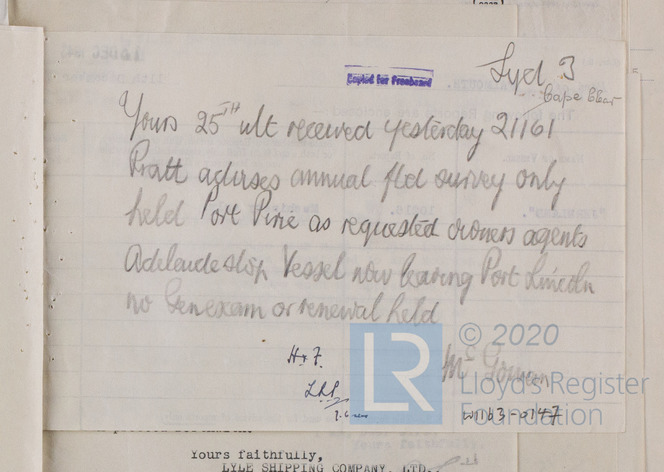 Copied for Freeboard
Syd. 3
Cape Clear
Yours 25TH ult received yesterday 21161
Pratt advises annual fbd survey only
held Port Pirie as requested owners agents
Adelaide stop Vessel now leaving Port Lincoln
no Genexam or renewal held
H & F.
© 2020
McGowan
Lloyd's Register
Foundation
LR
W1163-0147
Yours faithfully,
LYLE SHIPPING COMPANY, LTD.,